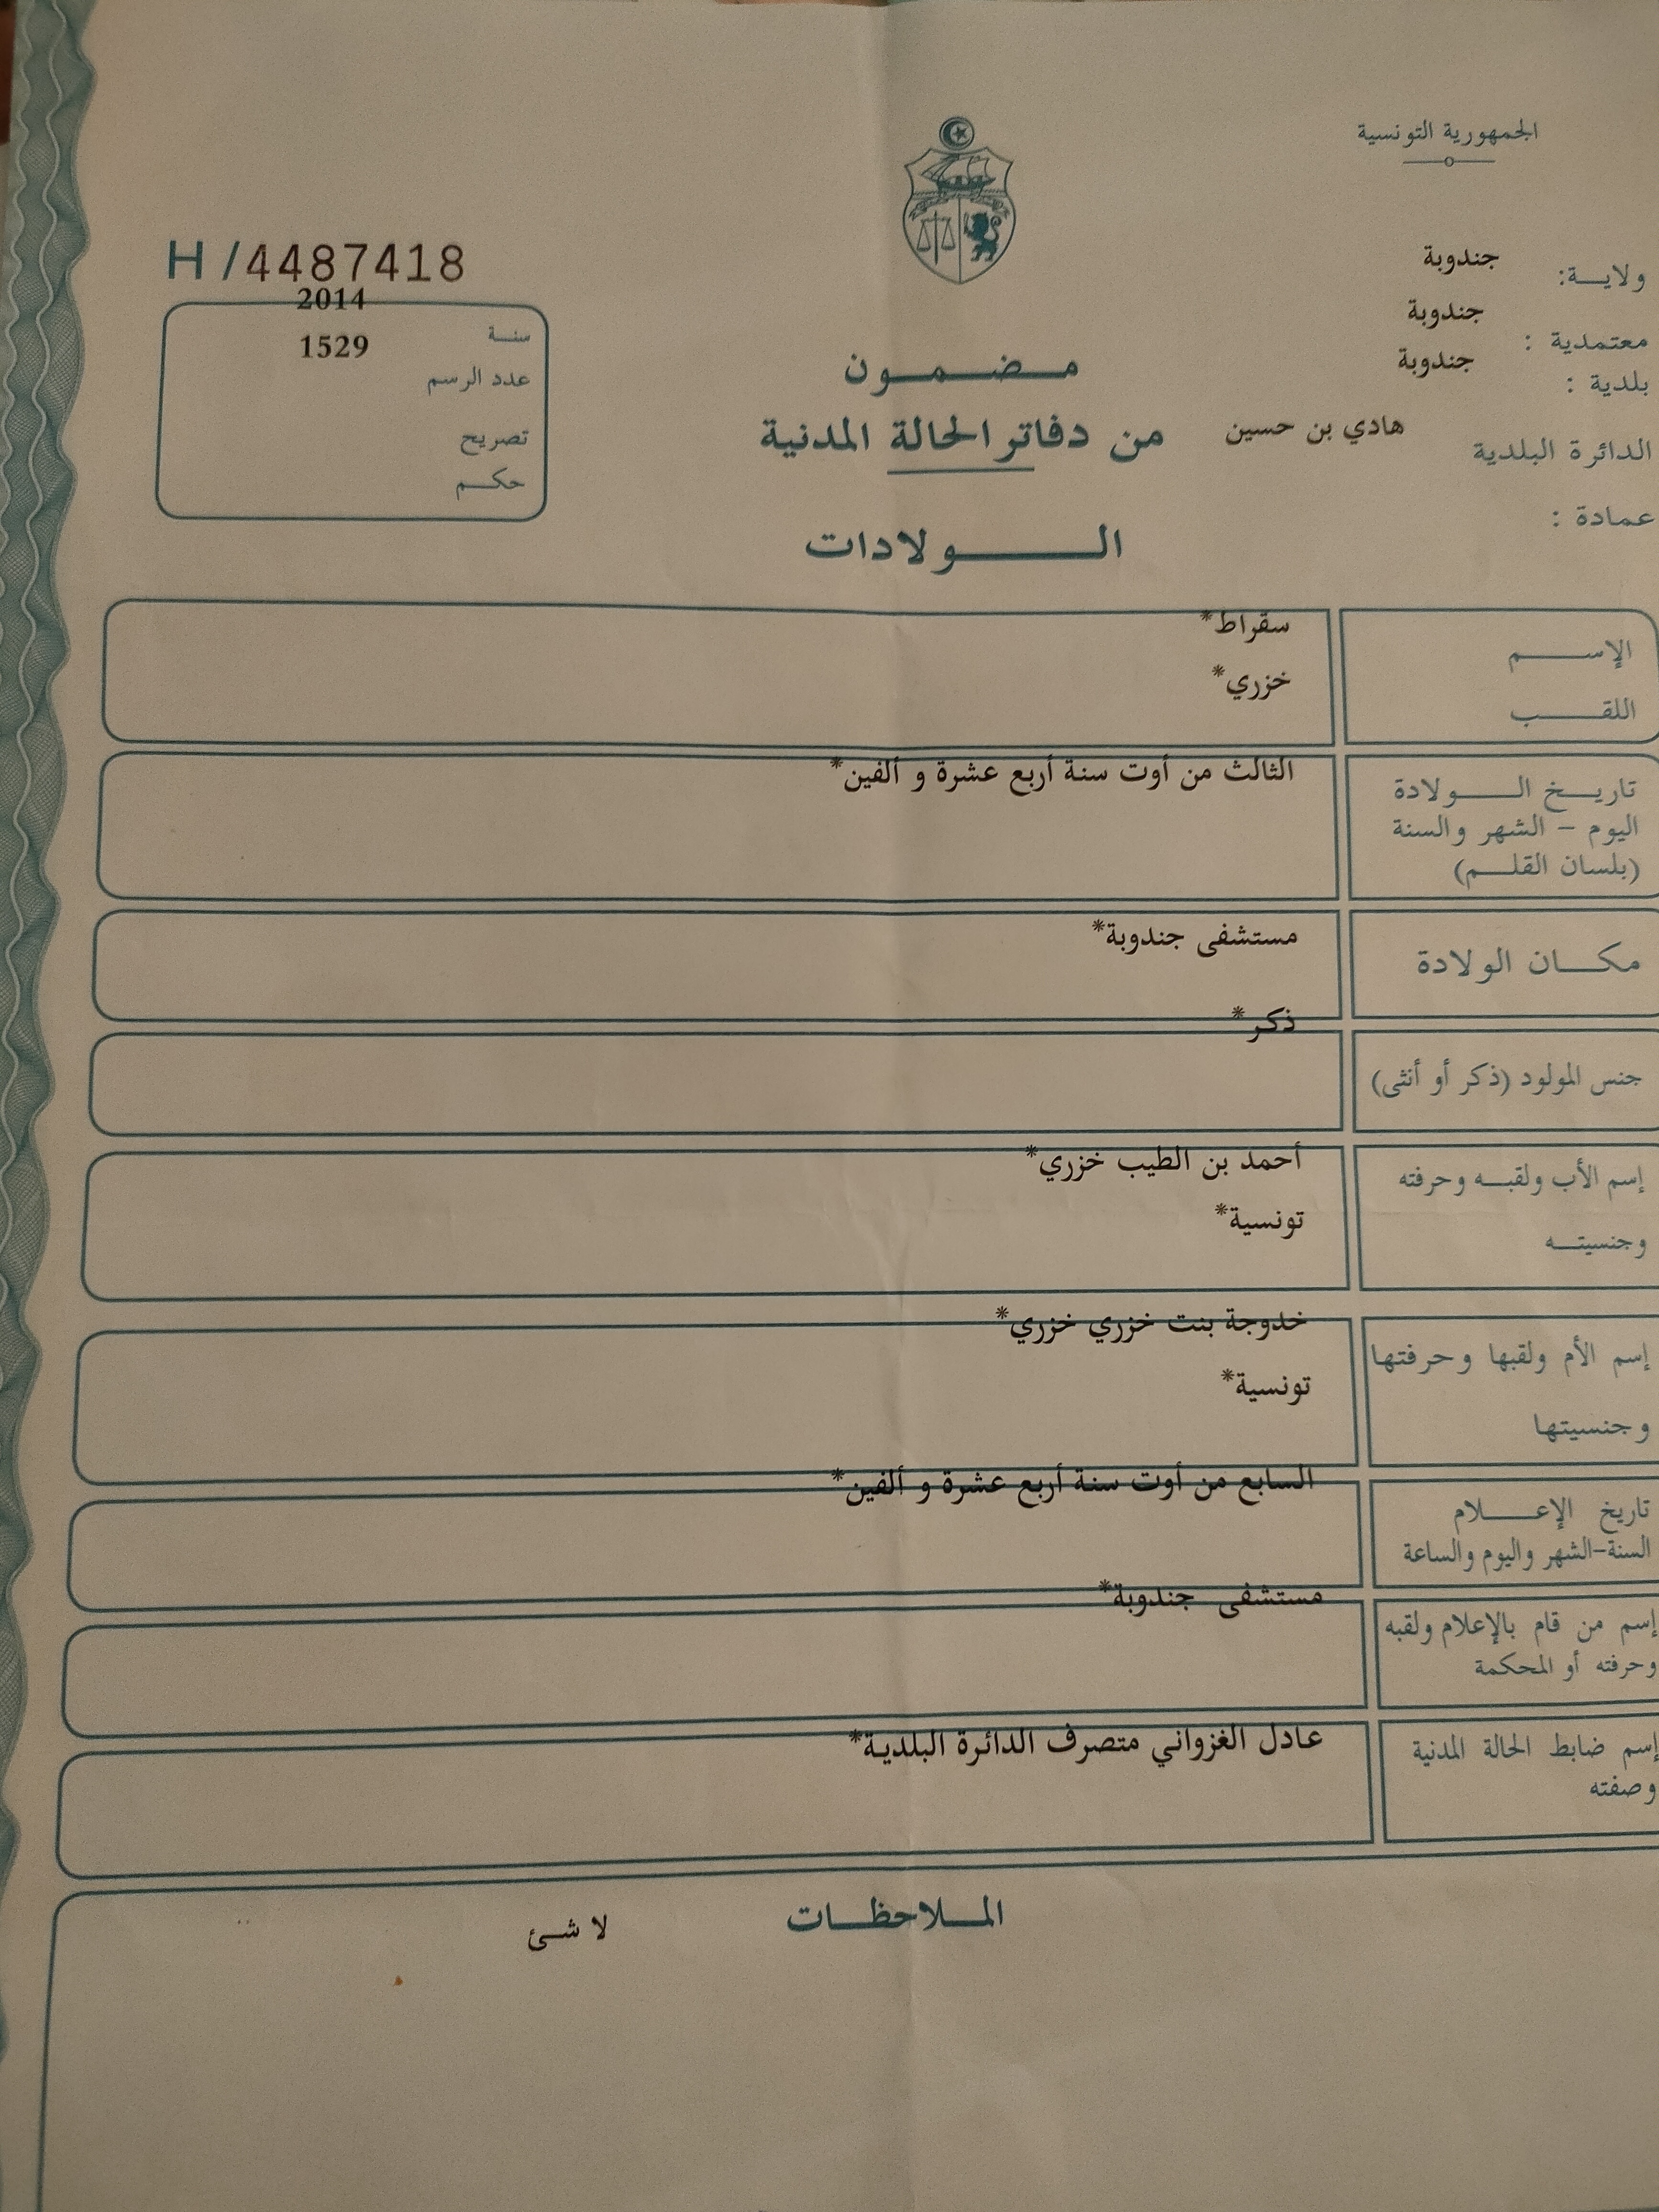 الجمهورية التونسية
ولاية: جندوبة
معتمدية : جندوبة
بلدية : جندوبة
الدائرة البلدية هادي بن حسين
عمادة :
H /4487418
سنة 2014
عدد الرسم 1529
تصريح
حكم
مضمون
من دفاتر الحالة المدنية
الولادات
الإسم سقراط*
اللقب خزري*
تاريخ الولادة الثالث من أوت سنة أربع عشرة و ألفين*
اليوم - الشهر والسنة
(بلسان القلم)
مكان الولادة مستشفى جندوبة*
جنس المولود (ذكر أو أنثى) ذكر*
إسم الأب ولقبه وحرفته أحمد بن الطيب خزري*
وجنسيته تونسية*
إسم الأم ولقبها وحرفتها خدوجة بنت خزري خزري*
وجنسيتها تونسية*
تاريخ الإعلام السابع من أوت سنة أربع عشرة و ألفين*
السنة-الشهر واليوم والساعة
إسم من قام بالإعلام ولقبه مستشفى جندوبة*
وحرفته أو المحكمة
إسم ضابط الحالة المدنية عادل الغزواني متصرف الدائرة البلدية*
وصفته
الملاحظات
لا شئ